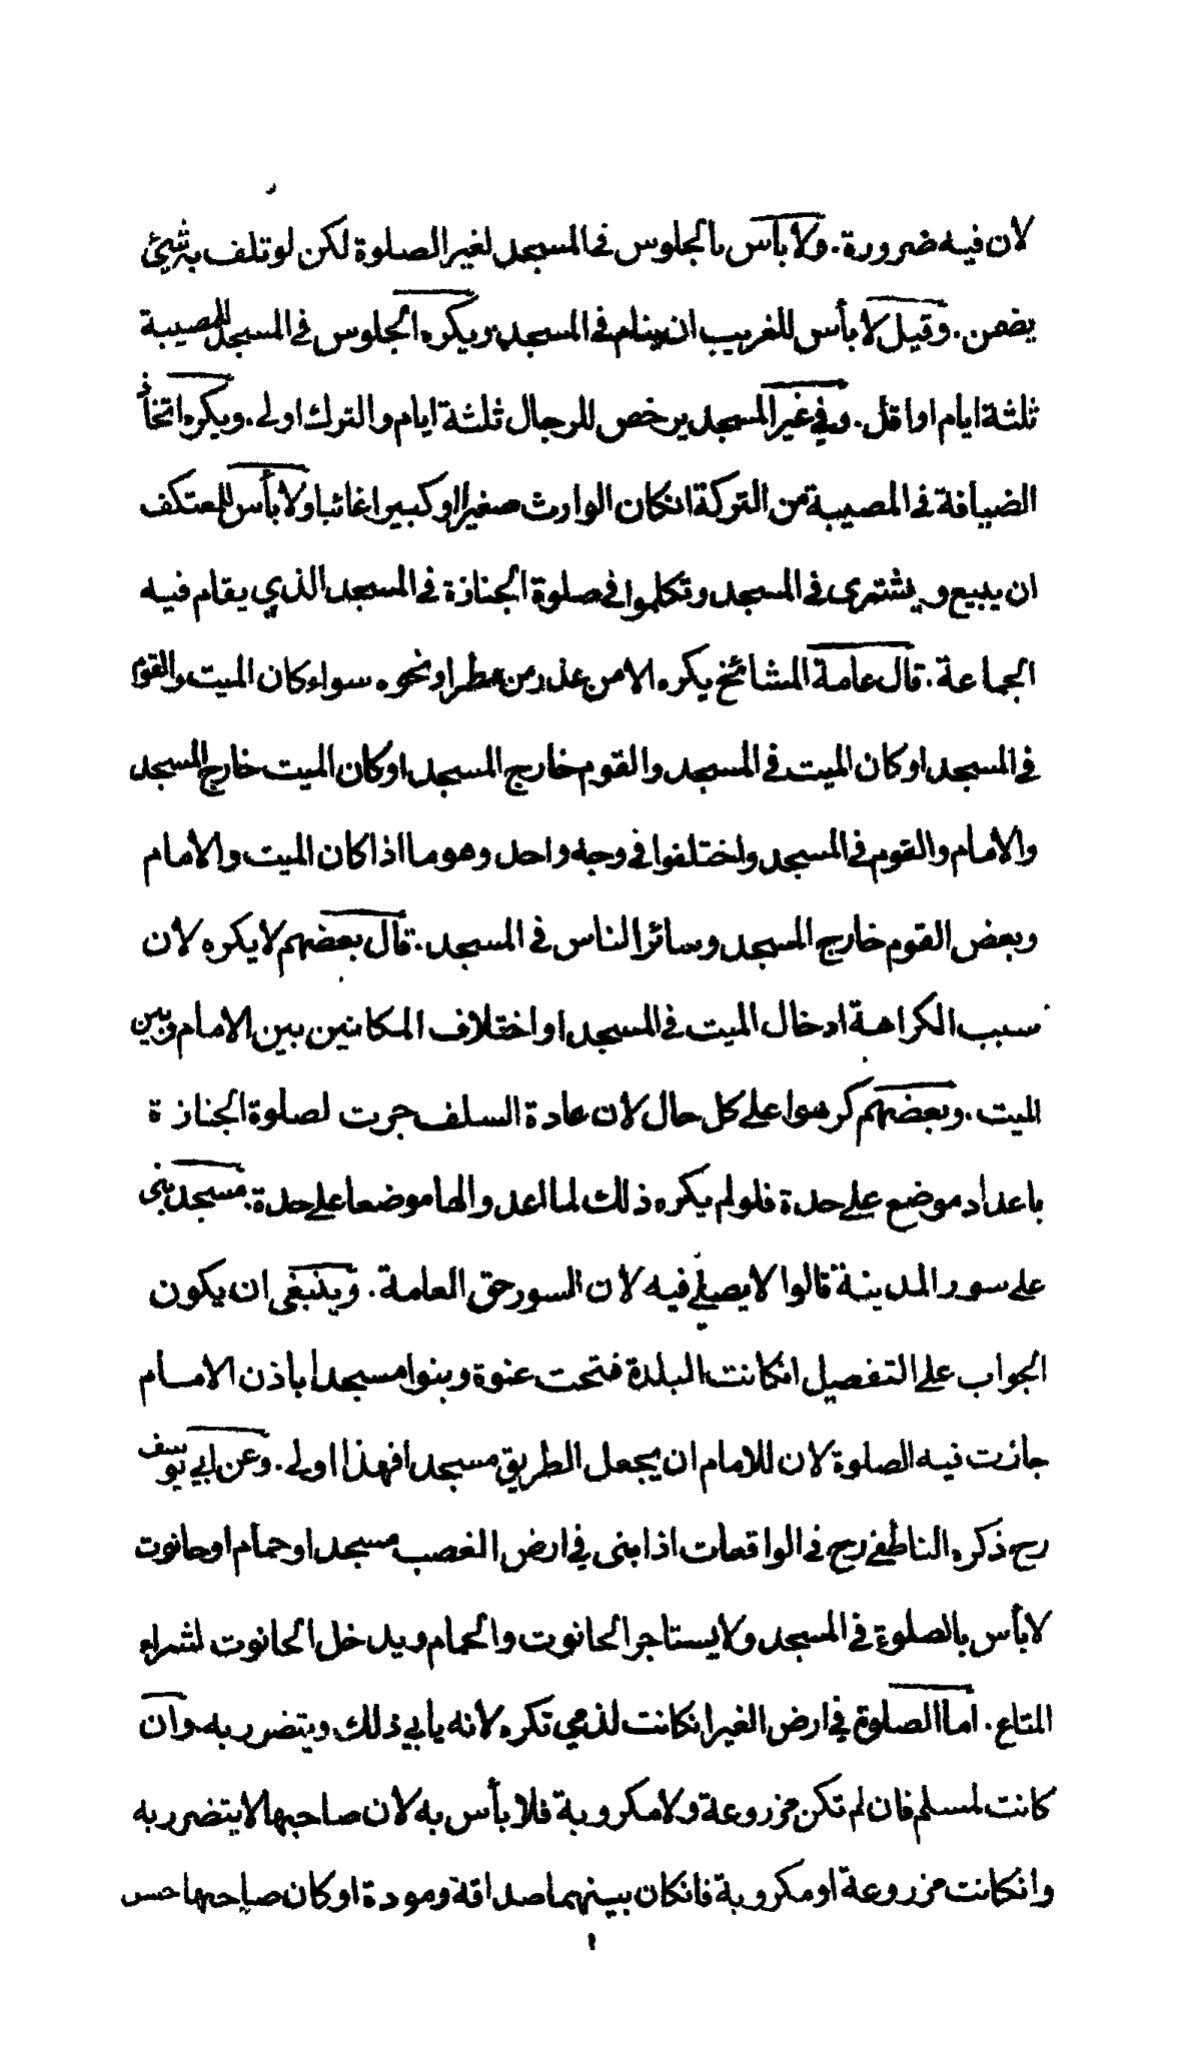 لان فيه ضرورة. ولا بأس بالجلوس فى المسجد لغير الصلوة لكن لو تلف به شيئ
يضمن. وقيل لا بأس للغريب ان ينام فى المسجد ويكره الجلوس فى المسجد للمصيبة
ثلثة ايام او اقل. وفي غير المسجد يرخص للرجال ثلثة ايام والترك اولى. ويكره اتخاذ
الضيافة فى المصيبة من التركة انكان الوارث صغيرا او كبيرا غائبا ولا بأس للمعتكف
ان يبيع ويشترى فى المسجد وتكلموا فى صلوة الجنازة فى المسجد الذي يقام فيه
الجماعة. قال عامة المشائخ يكره الا من عذر من مطر او نحوه سواء كان الميت والقوم
فى المسجد او كان الميت فى المسجد والقوم خارج المسجد او كان الميت خارج المسجد
والامام والقوم فى المسجد واختلفوا فى وجه واحد وهو ما اذا كان الميت والامام
وبعض القوم خارج المسجد وسائر الناس فى المسجد. قال بعضهم لا يكره لان
سبب الكراهة ادخال الميت فى المسجد او اختلاف المكانين بين الامام وبين
الميت. وبعضهم كرهوا على كل حال لان عادة السلف جرت لصلوة الجنازة
باعداد موضع على حدة فلو لم يكره ذلك لما اعدوا لها موضعا على حدة. مسجد بنى
على سور المدينة قالوا لا يصلي فيه لان السور حق العامة. وينبغى ان يكون
الجواب على التفصيل انكانت البلدة فتحت عنوة وبنوا مسجدا باذن الامام
جازت فيه الصلوة لان للامام ان يجعل الطريق مسجدا فهذا اولى. وعن ابي يوسف
رح ذكره الناطفي رح فى الواقعات اذا بنى في ارض الغصب مسجدا او حمام او حانوت
لا بأس بالصلوة فى المسجد ولا يستاجر الحانوت والحمام ويدخل الحانوت لشراء
المتاع. اما الصلوة في ارض الغير انكانت لذمي تكره لانه يابي ذلك ويتضرر به وان
كانت لمسلم فان لم تكن مزروعة ولا مكروبة فلا بأس به لان صاحبها لا يتضرر به
وانكانت مزروعة او مكروبة فانكان بينهما صداقة ومودة او كان صاحبها حسن